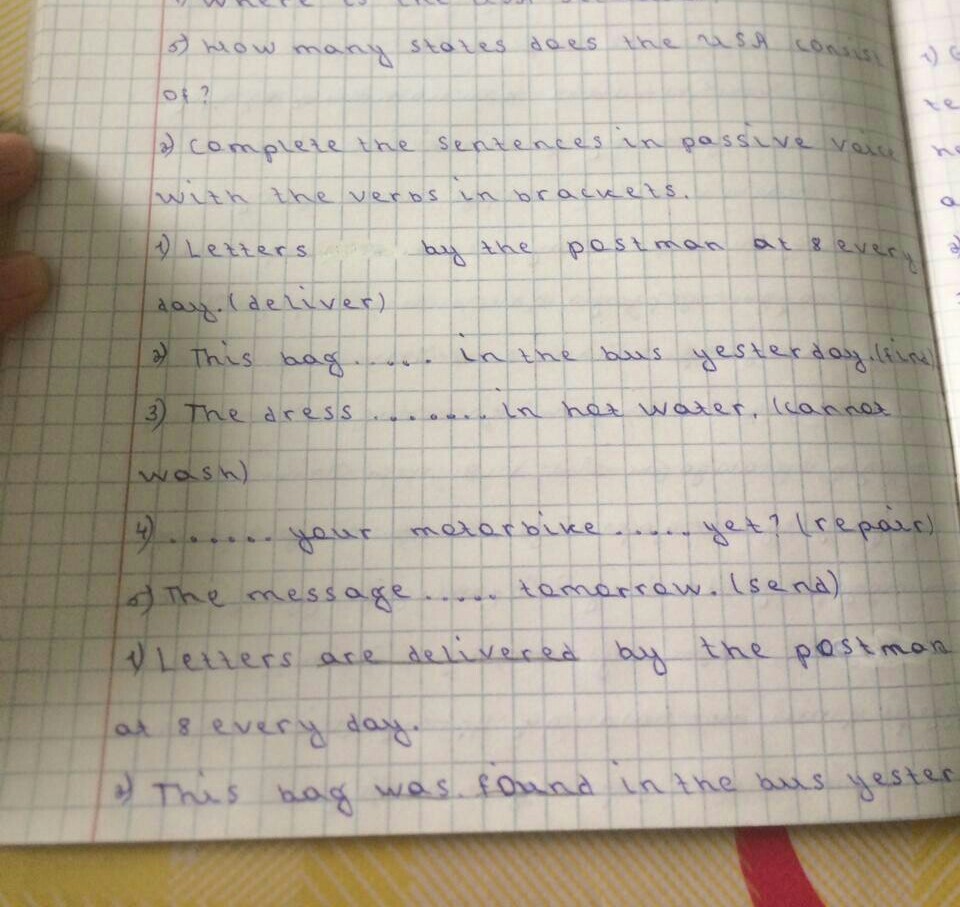 5) How many states does the USA consist
of?
2) Complete the sentences in passive voice
with the verbs in brackets.
1) Letters by the postman at 8 every
day. (deliver)
2) This bag ..... in the bus yesterday. (find)
3) The dress ....... in hot water. (cannot
wash)
4) ...... your motorbike ..... yet? (repair)
5) The message ..... tomorrow. (send)
1) Letters are delivered by the postman
at 8 every day.
2) This bag was found in the bus yester